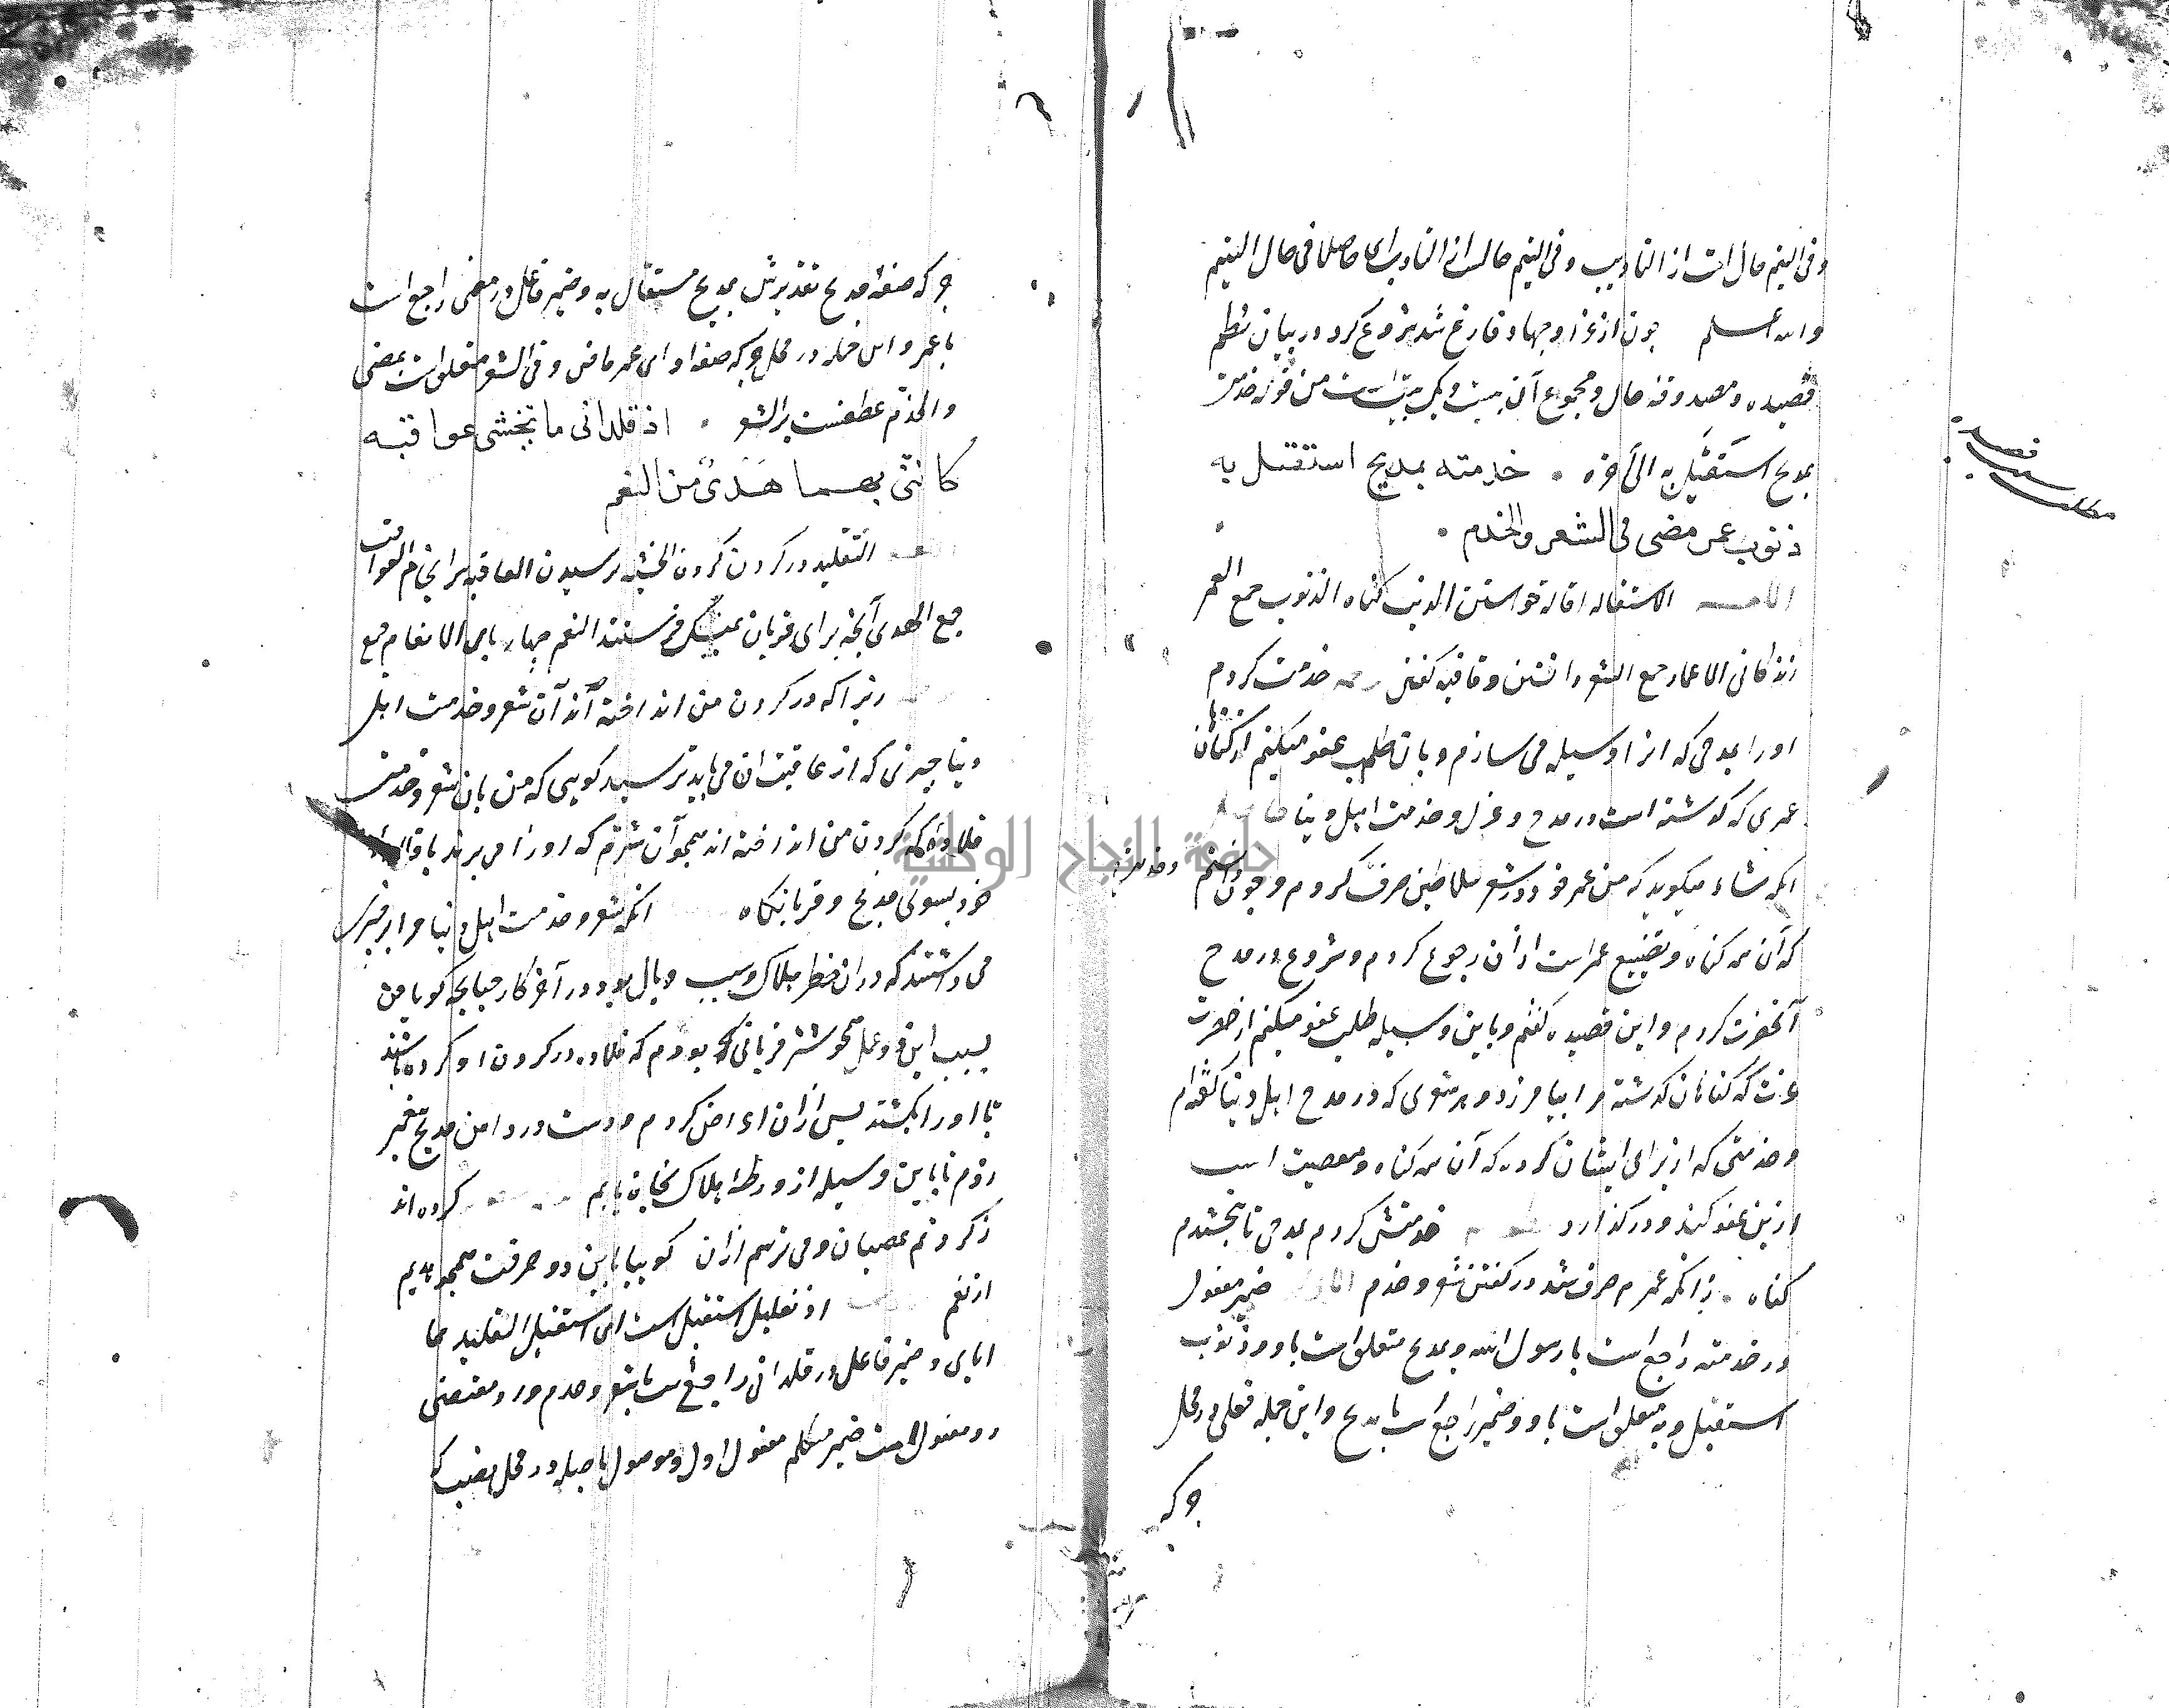 وفی الیتم حال است از التادیب وفی الیتم حال است از التادیب ای حاصلا فی حال الیتم
والله اعلم چون از غزا وجهاد فارغ شد شروع کرد در بیان نظم
قصیده ومصدوقه حال ومجموع آن بیست ویک بیت است من قوله خدمته
بمدیح استقیل به الی آخره خدمته بمدیح استقیل به
ذنوب عمر مضی فی الشعر والخدم
الاستقاله اقاله خواستن الذنب کناه الذنوب جمع العمر
زندکانی الاعمار جمع الشعر دانستن وقافیه کفتن خدمت کردم
اورا بمدحی که انرا وسیله می سازم وبان طلب عفو میکنم از کناهان
عمری که کذشته است در مدح وغزل وخدمت اهل دنیا
انکه شاعر میکوید که من عمر خود در شعر سلاطین صرف کردم وچون دانستم
که آن همه کناه وتضییع عمر است از آن رجوع کردم وشروع در مدح
آنحضرت کردم واین قصیده کفتم وباین وسیله طلب عفو میکنم از حضرت
عزت که کناهان کذشته مرا بیامرزد وهر شعری که در مدح اهل دنیا کفته ام
وخدمتی که از برای ایشان کرده که آن همه کناه ومعصیت است
ازین عفو کند ودر کذارد خدمتش کردم بمدحی تا ببخشندم
کناه زانکه عمرم صرف شد در کفتن شعر وخدم ضمیر مفعول
در خدمته راجع است با رسول الله وبمدیح متعلق است باو وذنوب
استقیل وبه متعلق است باو وضمیر راجع است با مدیح واین جمله فعلی در محل
جر که
جر که صفة مدیح تقدیرش بمدیح مستقال به وضمیر فاعل در مضی راجع است
با عمر واین جمله در محل جر که صفة او ای عمر ماض وفی الشعر متعلق است بمضی
والخدم عطفست بر الشعر اذ قلدانی ما تخشی عواقبه
کاننی بهما هدی من النعم
التقلید در کردن کردن الخشیه ترسیدن العاقبه سرانجام العواقب
جمع الهدی آنچه برای قربان بمکه فرستند النعم چهارپای الانعام جمع
زیرا که در کردن من انداخته اند آن شعر وخدمت اهل
دنیا چیزی که از عاقبت ان می باید ترسید کویی که من بان شعر وخدمت
قلاده که در کردن من انداخته اند همچو آن شترم که اورا می برند با قلاده
خود بسوی مذبح وقربانکاه انکه شعر وخدمت اهل دنیا مرا بر چیزی
می داشتند که دران خطر هلاک وسبب وبال بود ودر آخر کار چنانچه کویا من
بسبب این دو عمل همچو شتر قربانی بودم که قلاده در کردن او کرده باشند
تا اورا بکشند پس ازان اعراض کردم ودست در دامن مدیح پیغمبر
زدم تا باین وسیله از ورطه هلاک نجاة یابم کرده اند
زکردنم عصیان ومی ترسم ازان کوییا باین دو حرفت همچو هدیم
از نعم اذ تعلیل استقیل است ای استقیل لتقلیدهما
ایای وضمیر فاعل در قلدانی راجع است بشعر وخدم ومقتضی
دو مفعول است ضمیر متکلم مفعول اول وموصول با صله در محل نصب که